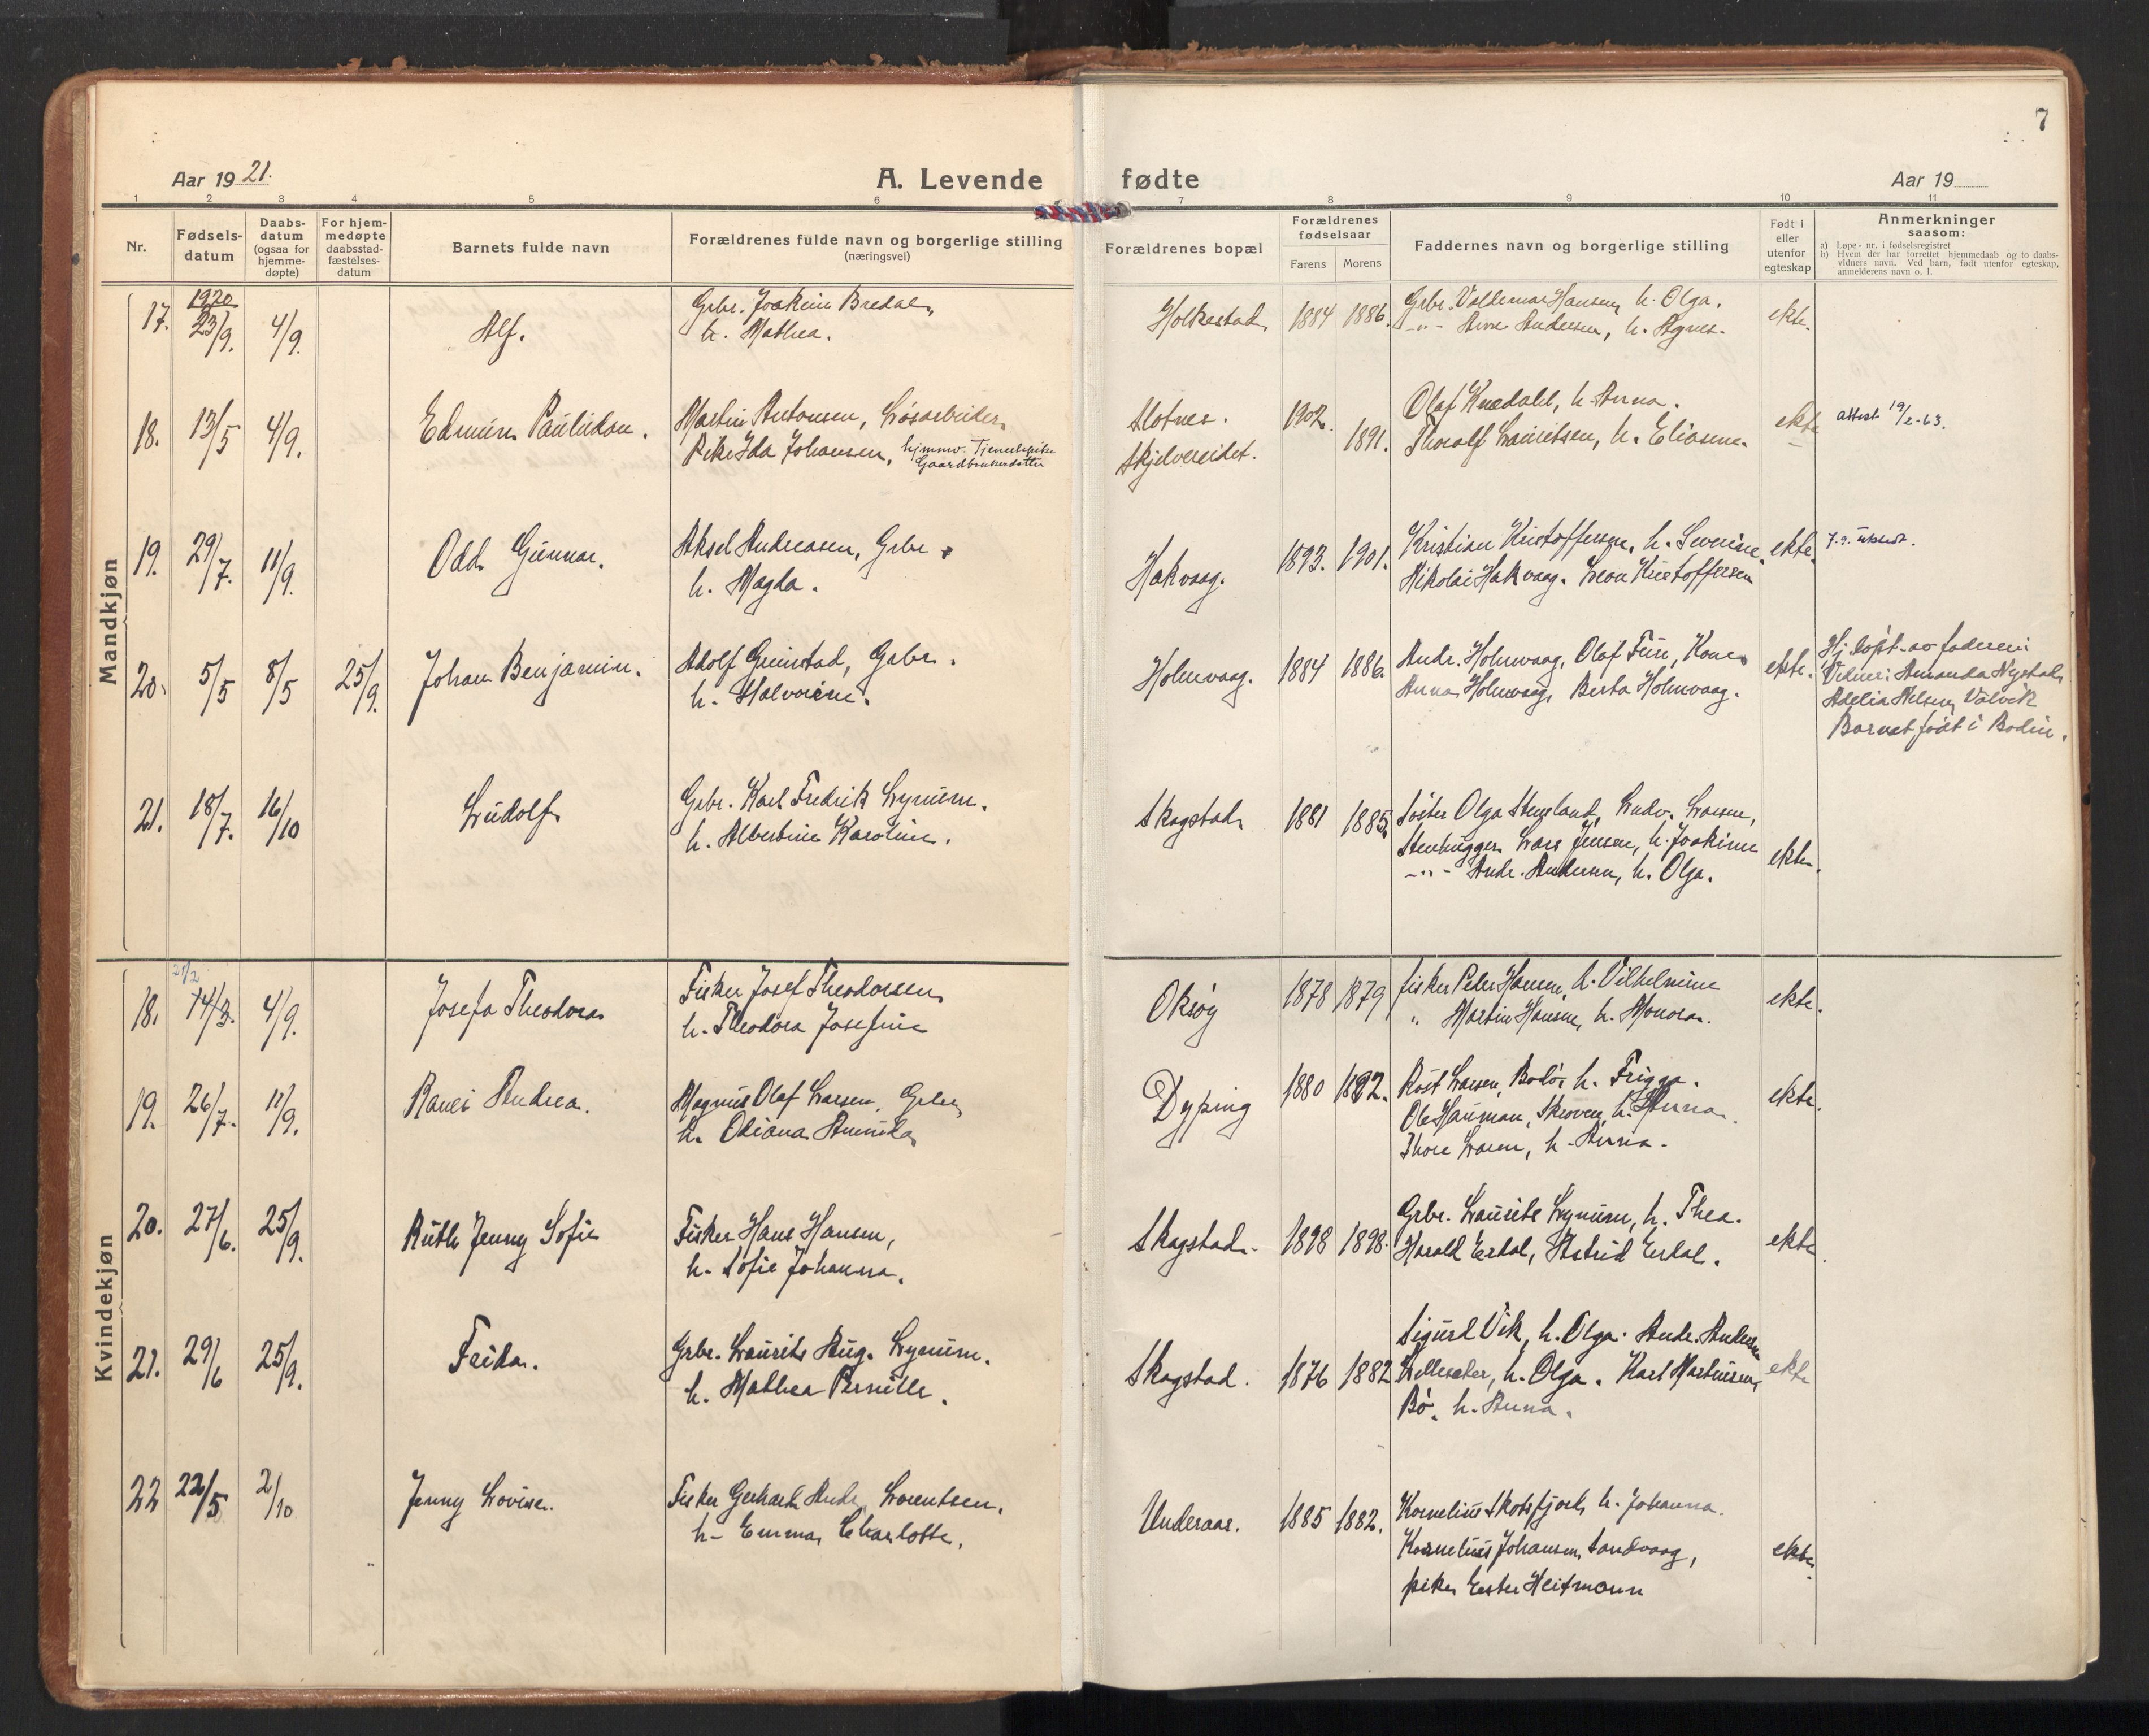 7
Aar 1921.
A. Levende
fødte
Aar 19
1 2 3 4 5 6 7 8 9 10 11
Nr.
Fødsels-
datum
Daabs-
datum
(ogsaa for
hjemme-
døpte)
For hjem-
medøpte
daabsstad-
fæstelses-
datum
Barnets fulde navn
Forældrenes fulde navn og borgerlige stilling
(næringsvei)
Forældrenes bopæl
Forældrenes
fødselsaar
Farens Morens
Faddernes navn og borgerlige stilling
Født i
eller
utenfor
egteskap
Anmerkninger
saasom:
a) Løpe-nr. i fødselsregistret
b) Hvem der har forrettet hjemmedaab og to daabs-
vidners navn. Ved barn, født utenfor egteskap,
anmelderens navn o. l.
Mandkjøn
1920
17. 23/9. 4/9. Alf. Grbr. Joakim Bredal, Holkestad 1884 1886. Grbr. Valdemar Hansen, h. Olga. ekte.
h. Mathea. -"- Arne Andersen, h. Agnes.
18. 13/5 4/9. Edmun Paulidon. Martin Antonsen, Løsarbeider Slotnes. 1902. Olaf Knædahl, h. Anna. ekte attest 19/2-63.
Pike Ida Johansen, hjemmv. Tjenestepike Skjelvereidet. 1891. Thoralf Lauritsen, h. Eliasine.
Gaardbrukerdatter
19. 29/7. 11/9. Odd Gunnar. Aksel Andreasen, Grbr. Hakvaag. 1893. 1901. Kristian Kristoffersen, h. Severine. ekte.
h. Magda. Nikolai Hakvaag. Leon Kristoffersen
20. 5/5 8/5 25/9. Johan Benjamin. Adolf Grimstad, Gabr. Holmvaag. 1884 1886. Andr. Holmvaag, Olaf Fure, Kone ekte. Hj. døpt av faderen:
h. Halvorine. Anna Holmvaag, Berta Holmvaag. Vidner: Amanda Nystad,
Adelia Nelsen, Valvik
Barnet født i Bodin.
21. 18/7. 16/10 Ludolf Grbr. Karl Fredrik Lynum. Skagstad 1881 1885. Søster Olga Steinland, Ludv. Larsen,
h. Albertine Karoline. Stenhugger Lars Jensen, h. Joakime ekte.
-"- Andr. Andersen, h. Olga.
Kvindekjøn
18. 14/3. 4/9. Josefa Theodora Fisker Josef Theodorsen Oksøy 1878 1879 fisker Peder Hansen, h. Vilhelmine ekte.
h. Theodora Josefine " Martin Hansen, h. Monora.
19. 26/7. 11/9. Ranei Andrea. Magnus Olaf Larsen, Grbr, Dyping 1880 1882. Røst Larsen, Bodø, h. Frigga. ekte.
h. Odiana Annida Ole Hauman, Skroven, h. Anna.
Thore Larsen, h. Anna.
20. 27/6. 25/9. Ruth Jenny Sofie Fisker Hans Hansen, Skagstad. 1898 1898. Grbr. Laurits Lynum, h. Thea. ekte.
h. Sofie Johanna. Harald Erdal, Astrid Erdal.
21. 29/6 25/9. Frida. Grbr. Laurits Aug. Lynum. Skagstad. 1876 1882 Sigurd Vik, h. Olga. Andr. Andersen ekte
h. Mathea Pernille. h. Olga. Karl Martinsen,
Bø. h. Anna.
22 22/5 2/10 Jenny Lovise. Fisker Gerhard Andr. Lorentsen. Underaas. 1885 1882. Kornelius Skotsfjord, h. Johanna.
h- Emma Charlotte. Kornelius Johansen, Sandvaag, ekte.
pike Ester Heitmann